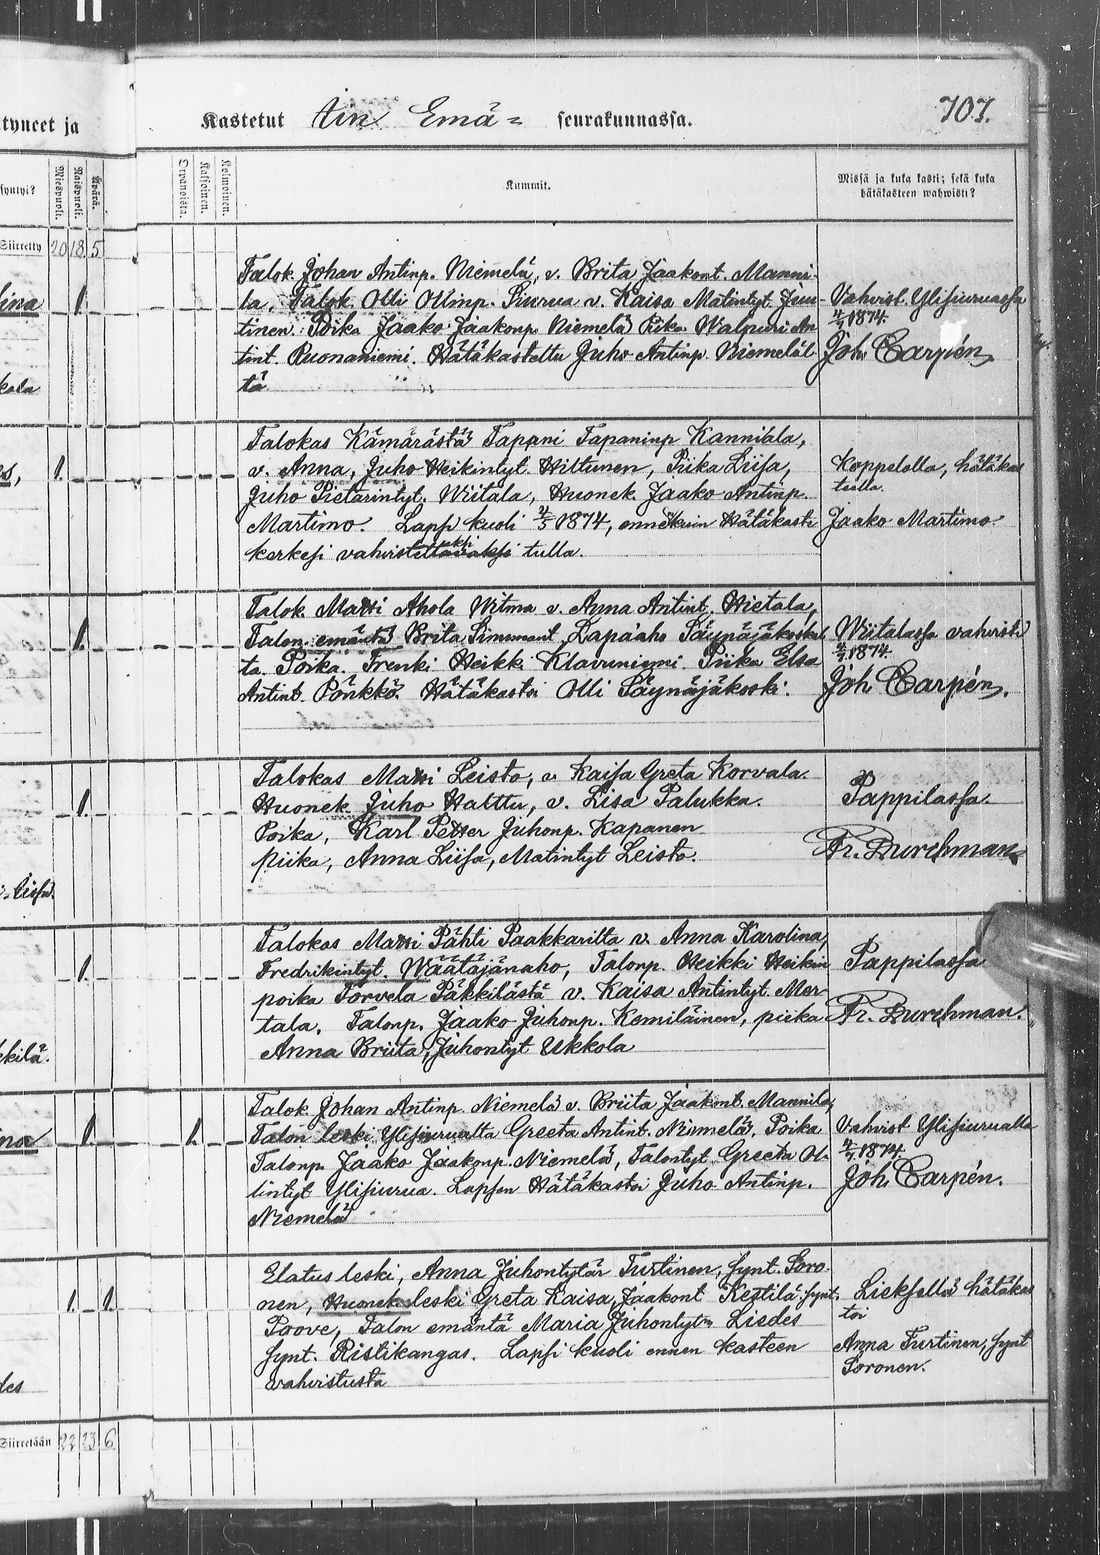 tyneet ja
Kastetut Iin Emä= seurakunnassa. 707.
syntyi?
Miespuoli.
Naispuoli.
Äpärä.
Orvanoista.
Kaksoinen.
Kolmoinen.
Kummit.
Missä ja kuka kasti; sekä kuka
hätäkasteen wahwisti?
Siirretty 20 18 5
Talok. Johan Antinp. Niemelä, v. Brita Jaakont. Manni-
la, Talok. Olli Ollinp. Siurua v. Kaisa Matintyt. Juu-
tinen. Poika Jaako Jaakonp. Niemelä Piika Walpuri An
tint. Ruonaniemi. Hätäkastettu Juho Antinp. Niemeläl
tä
lina 1
kola
Vahvist. Ylisiuruassa
4/7 1874.
Joh. Carpén,
Talokas Kämärästä Tapani Tapaninp. Kannibla,
v. Anna, Juho Heikintyt. Hiltunen, Piika Liisa,
Juho Pietarintyt. Wiitala, Huonek. Jaako Antinp.
Martimo. Lapsi kuoli 1874, ennekuin Hätäkaste
kerkesi vahvistettavaksi tulla.
s, 1.
Koppelolla, hätäkas
tulla.
Jaako Martimo.
Talok. Matti Ahola Witma v. Anna Antint. Hietala,
Talon emäntä Brita Simunant. Lapaaho Säynäjäkoskel
ta. Poika Frenki Heikki Klavuniemi Piika Elsa
Antint. Pönkkö. Hätäkastoi Olli Säynäjäkoski.
1.
Wiitalassa vahvisti
4/7 1874.
Joh Carpén.
Talokas Matti Leisto, v. Kaisa Greta Korvala.
Huonek. Juho Halttu, v. Lisa Palukka.
Poika, Karl Petter Juhonp. Kapanen
piika, Anna Liisa, Matintyt Leisto.
1.
Pappilassa.
Fr. Durchman
Talokas Matti Pähti Paakkarilta v. Anna Karolina,
Fredrikintyt. Wäätäjänaho, Talonp. Heikki Heikin
poika Torvela Päkkilästä v. Kaisa Antintyt. Mer-
tala. Talonp. Jaako Juhonp. Kemiläinen, piika
Anna Briita, Juhontyt Ukkola
1.
kkilä.
Pappilassa
Fr. Durchman.
Talok. Johan Antinp. Niemelä v. Briita Jaakont. Mannila,
Talon leski Ylisiurualta Greeta Antint. Niemelä. Poika
Talonp. Jaako Jaakonp. Niemelä, Talontyt Greeta Ol-
lintyt Ylisiurua. Lapsen Hätäkastoi Juho Antinp.
Niemelä
na 1 1.
Vahvist Ylisiurualla
4/7 1874.
Joh. Carpén.
Elatus leski, Anna Juhontytär Turtinen, synt. Soro-
nen, Huonek. leski Greta Kaisa, Jaakont Kestilä synt.
Poove, Talon emäntä Maria Juhontytr. Liedes
synt. Ristikangas. Lapsi kuoli ennen kasteen
vahvistusta
1 - 1
des
Lieksellä hätäkas
toi
Anna Turtinen, synt
Soronen.
Siirretään 22 23 6